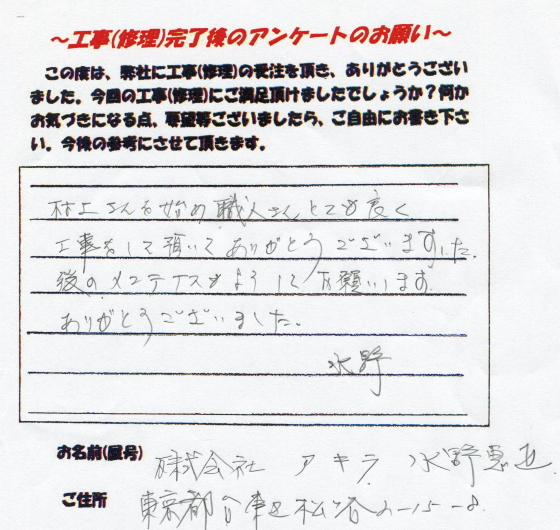 ～工事(修理)完了後のアンケートのお願い～
この度は、弊社に工事(修理)の受注を頂き、ありがとうござい
ました。今回の工事(修理)にご満足頂けましたでしょうか？何か
お気づきになる点、要望等ございましたら、ご自由にお書き下さ
い。今後の参考にさせて頂きます。
村上さんを始め職人さんとても良く
工事をして頂いてありがとうございました。
後のメンテナスもよろしくお願いします
ありがとうございました。
水野
お名前(屋号) 株式会社 アキラ 水野恵
ご住所 東京都台東区松が谷2-15-8